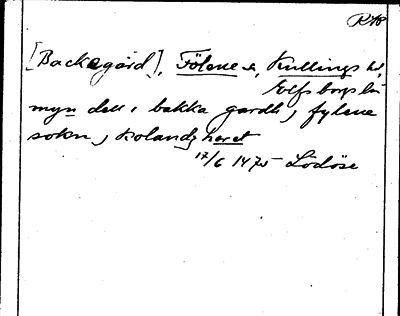 RAp
[Backegård], Fölene s., Kullings hd,
Elfsborgs län
myn dell i bakka gardh, fylene
sokn, Kolandz heret
17/6 1475 Lödöse